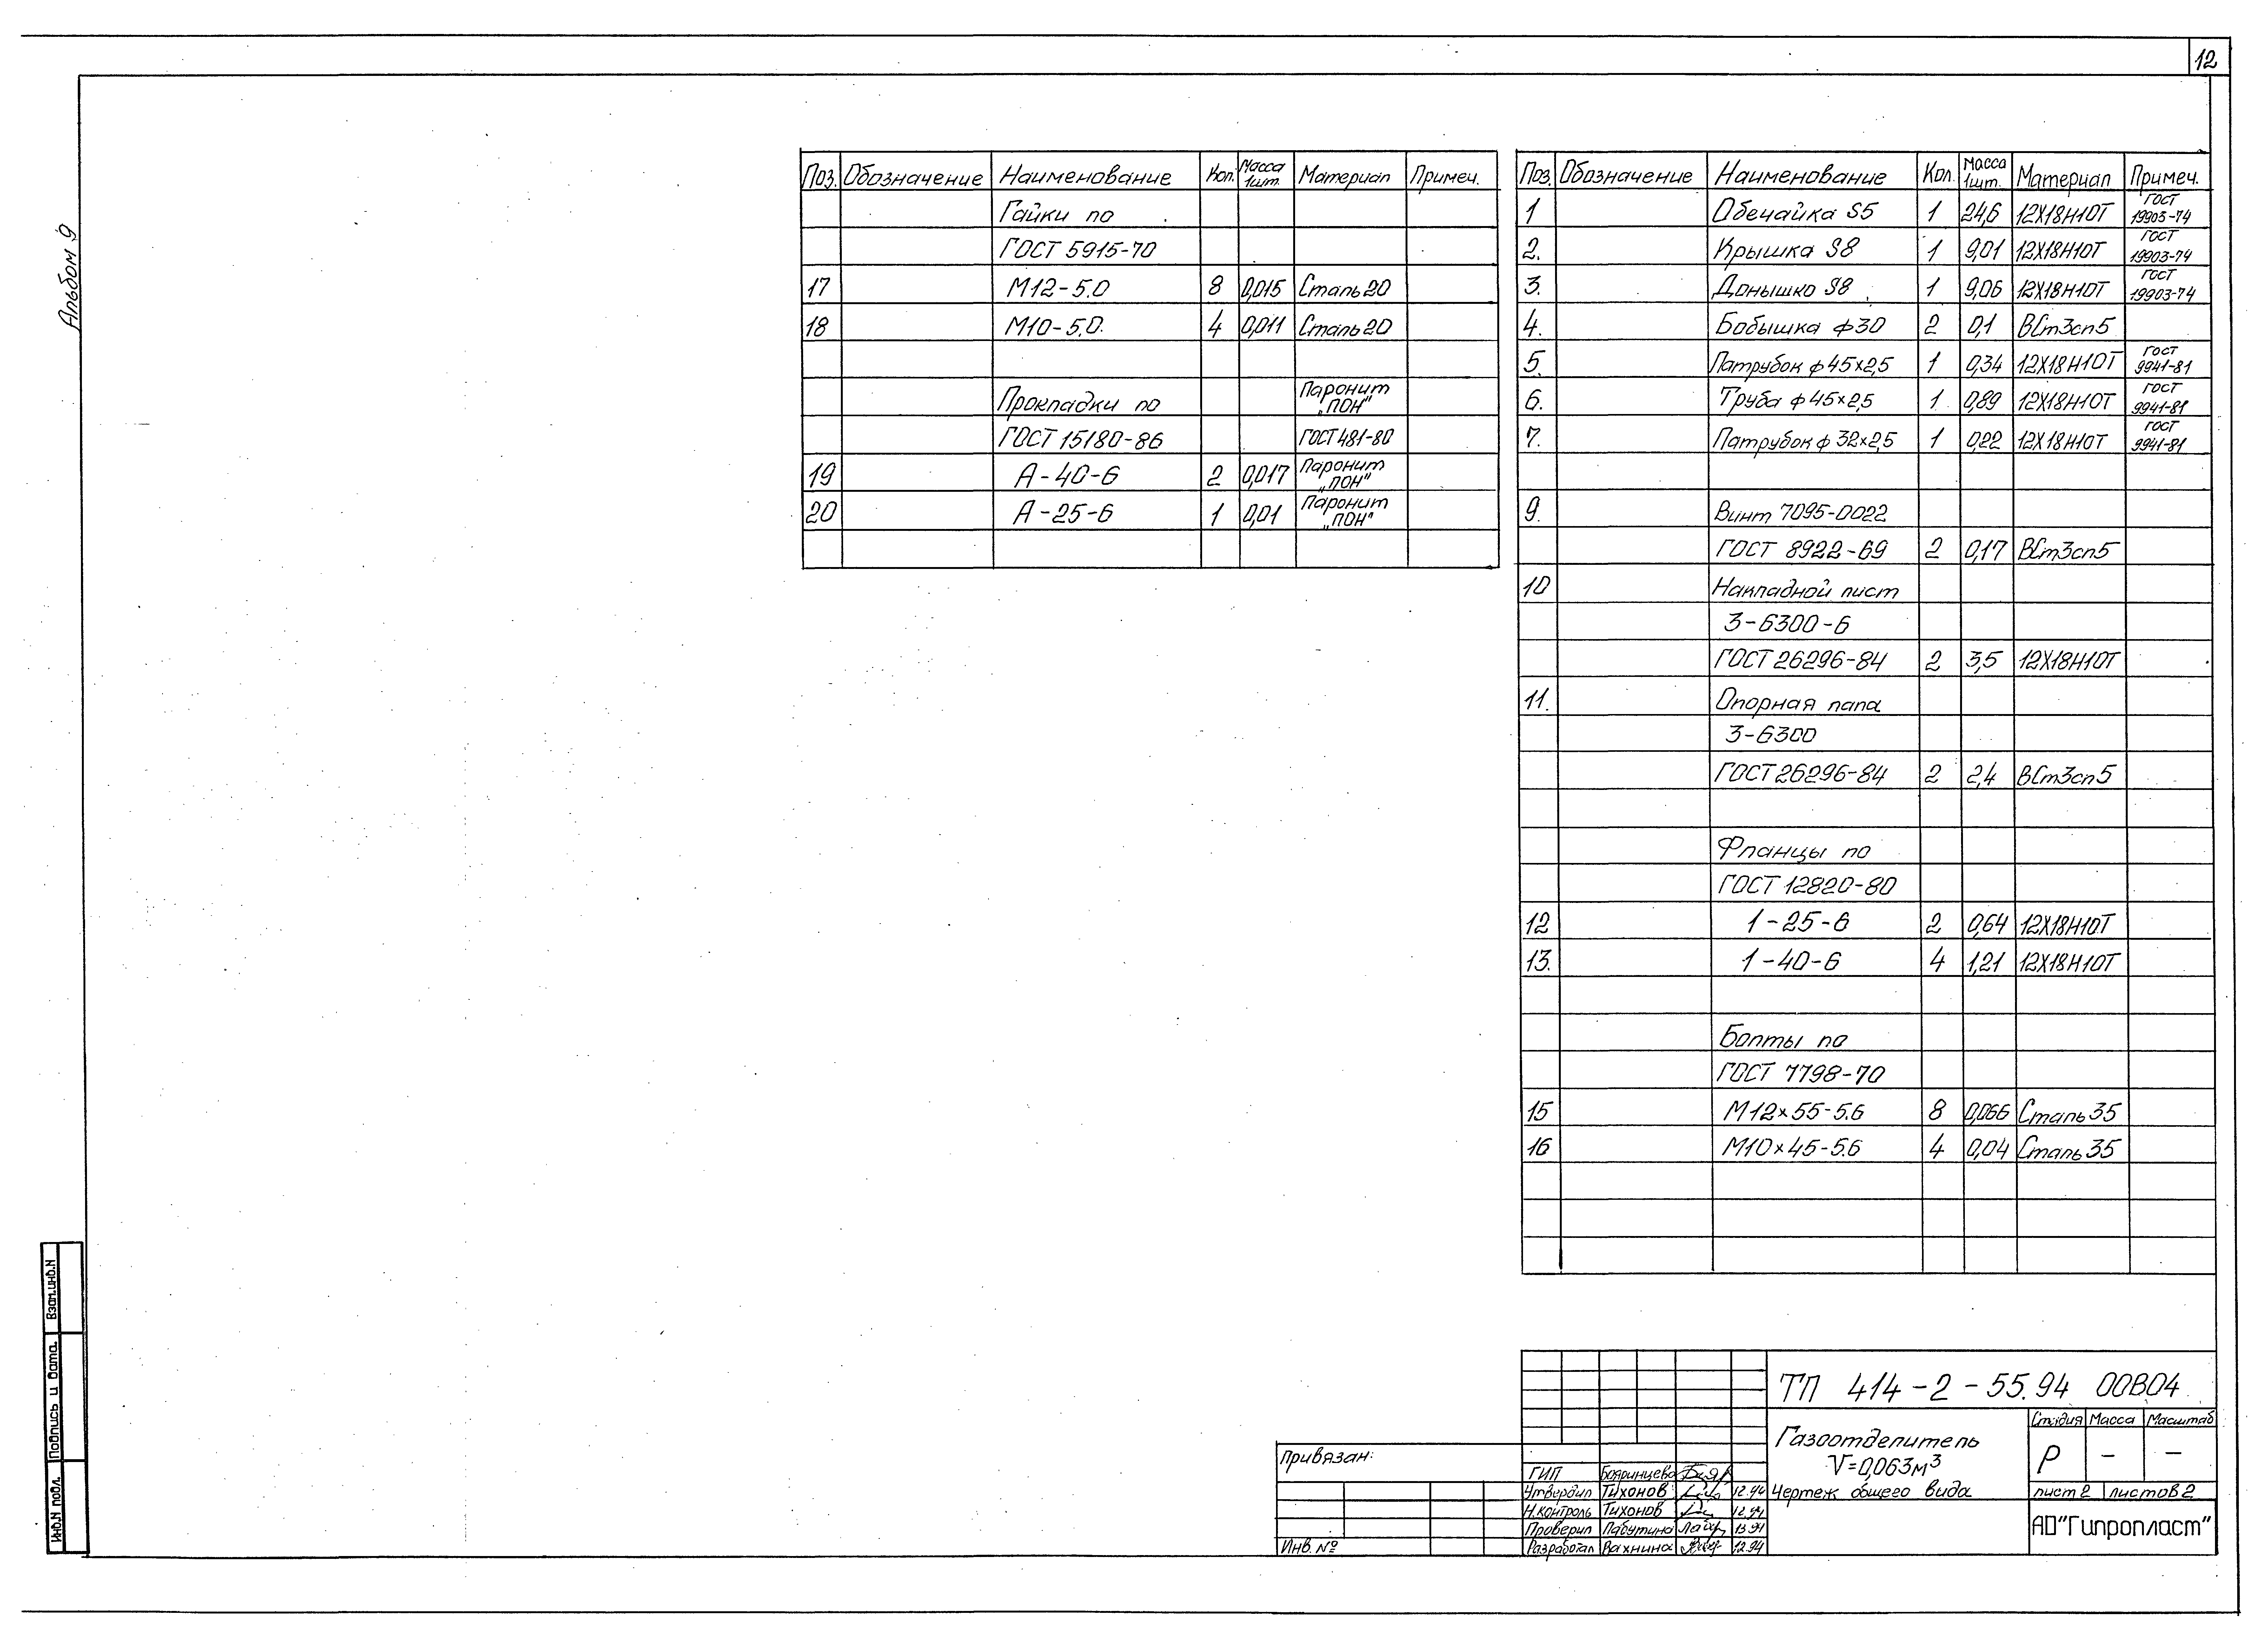 12
Альбом 9
Поз. Обозначение Наименование Кол. Масса 1шт. Материал Примеч.
Гайки по
ГОСТ 5915-70
17 М12-5.0 8 0,015 Сталь 20
18 М10-5.0. 4 0,011 Сталь 20
Прокладки по Паронит „ПОН"
ГОСТ 15180-86 ГОСТ 481-80
19 А-40-6 2 0,017 Паронит „ПОН"
20 А-25-6 1 0,01 Паронит „ПОН"
Поз. Обозначение Наименование Кол. Масса 1шт. Материал Примеч.
1 Обечайка S5 1 24,6 12Х18Н10Т ГОСТ 19903-74
2. Крышка S8 1 9,01 12Х18Н10Т ГОСТ 19903-74
3. Донышко S8 1 9,06 12Х18Н10Т ГОСТ 19903-74
4. Бобышка ф30 2 0,1 ВСт3сп5
5. Патрубок ф45х2,5 1 0,34 12Х18Н10Т ГОСТ 9941-81
6. Труба ф45х2,5 1 0,89 12Х18Н10Т ГОСТ 9941-81
7. Патрубок ф32х2,5 1 0,22 12Х18Н10Т ГОСТ 9941-81
9. Винт 7095-0022
ГОСТ 8922-69 2 0,17 ВСт3сп5
10 Накладной лист
3-6300-6
ГОСТ 26296-84 2 3,5 12Х18Н10Т
11. Опорная лапа
3-6300
ГОСТ 26296-84 2 2,4 ВСт3сп5
Фланцы по
ГОСТ 12820-80
12 1-25-6 2 0,64 12Х18Н10Т
13. 1-40-6 4 1,21 12Х18Н10Т
Болты по
ГОСТ 7798-70
15 М12х55-5.6 8 0,066 Сталь 35
16 М10х45-5.6 4 0,04 Сталь 35
ТП 414-2-55.94 00В04
Газоотделитель
V=0,063м³
Чертеж общего вида
Стадия Масса Масштаб
Р - -
лист 2 листов 2
АО"Гипропласт"
Привязан:
Инв. №
ГИП Бояринцева
Утвердил Тихонов 12.94
Н.контроль Тихонов 12.94
Проверил Лабутина
Разработал Вахнина 12.94
Взам.инв.N
Подпись и дата.
Инв.N подл.